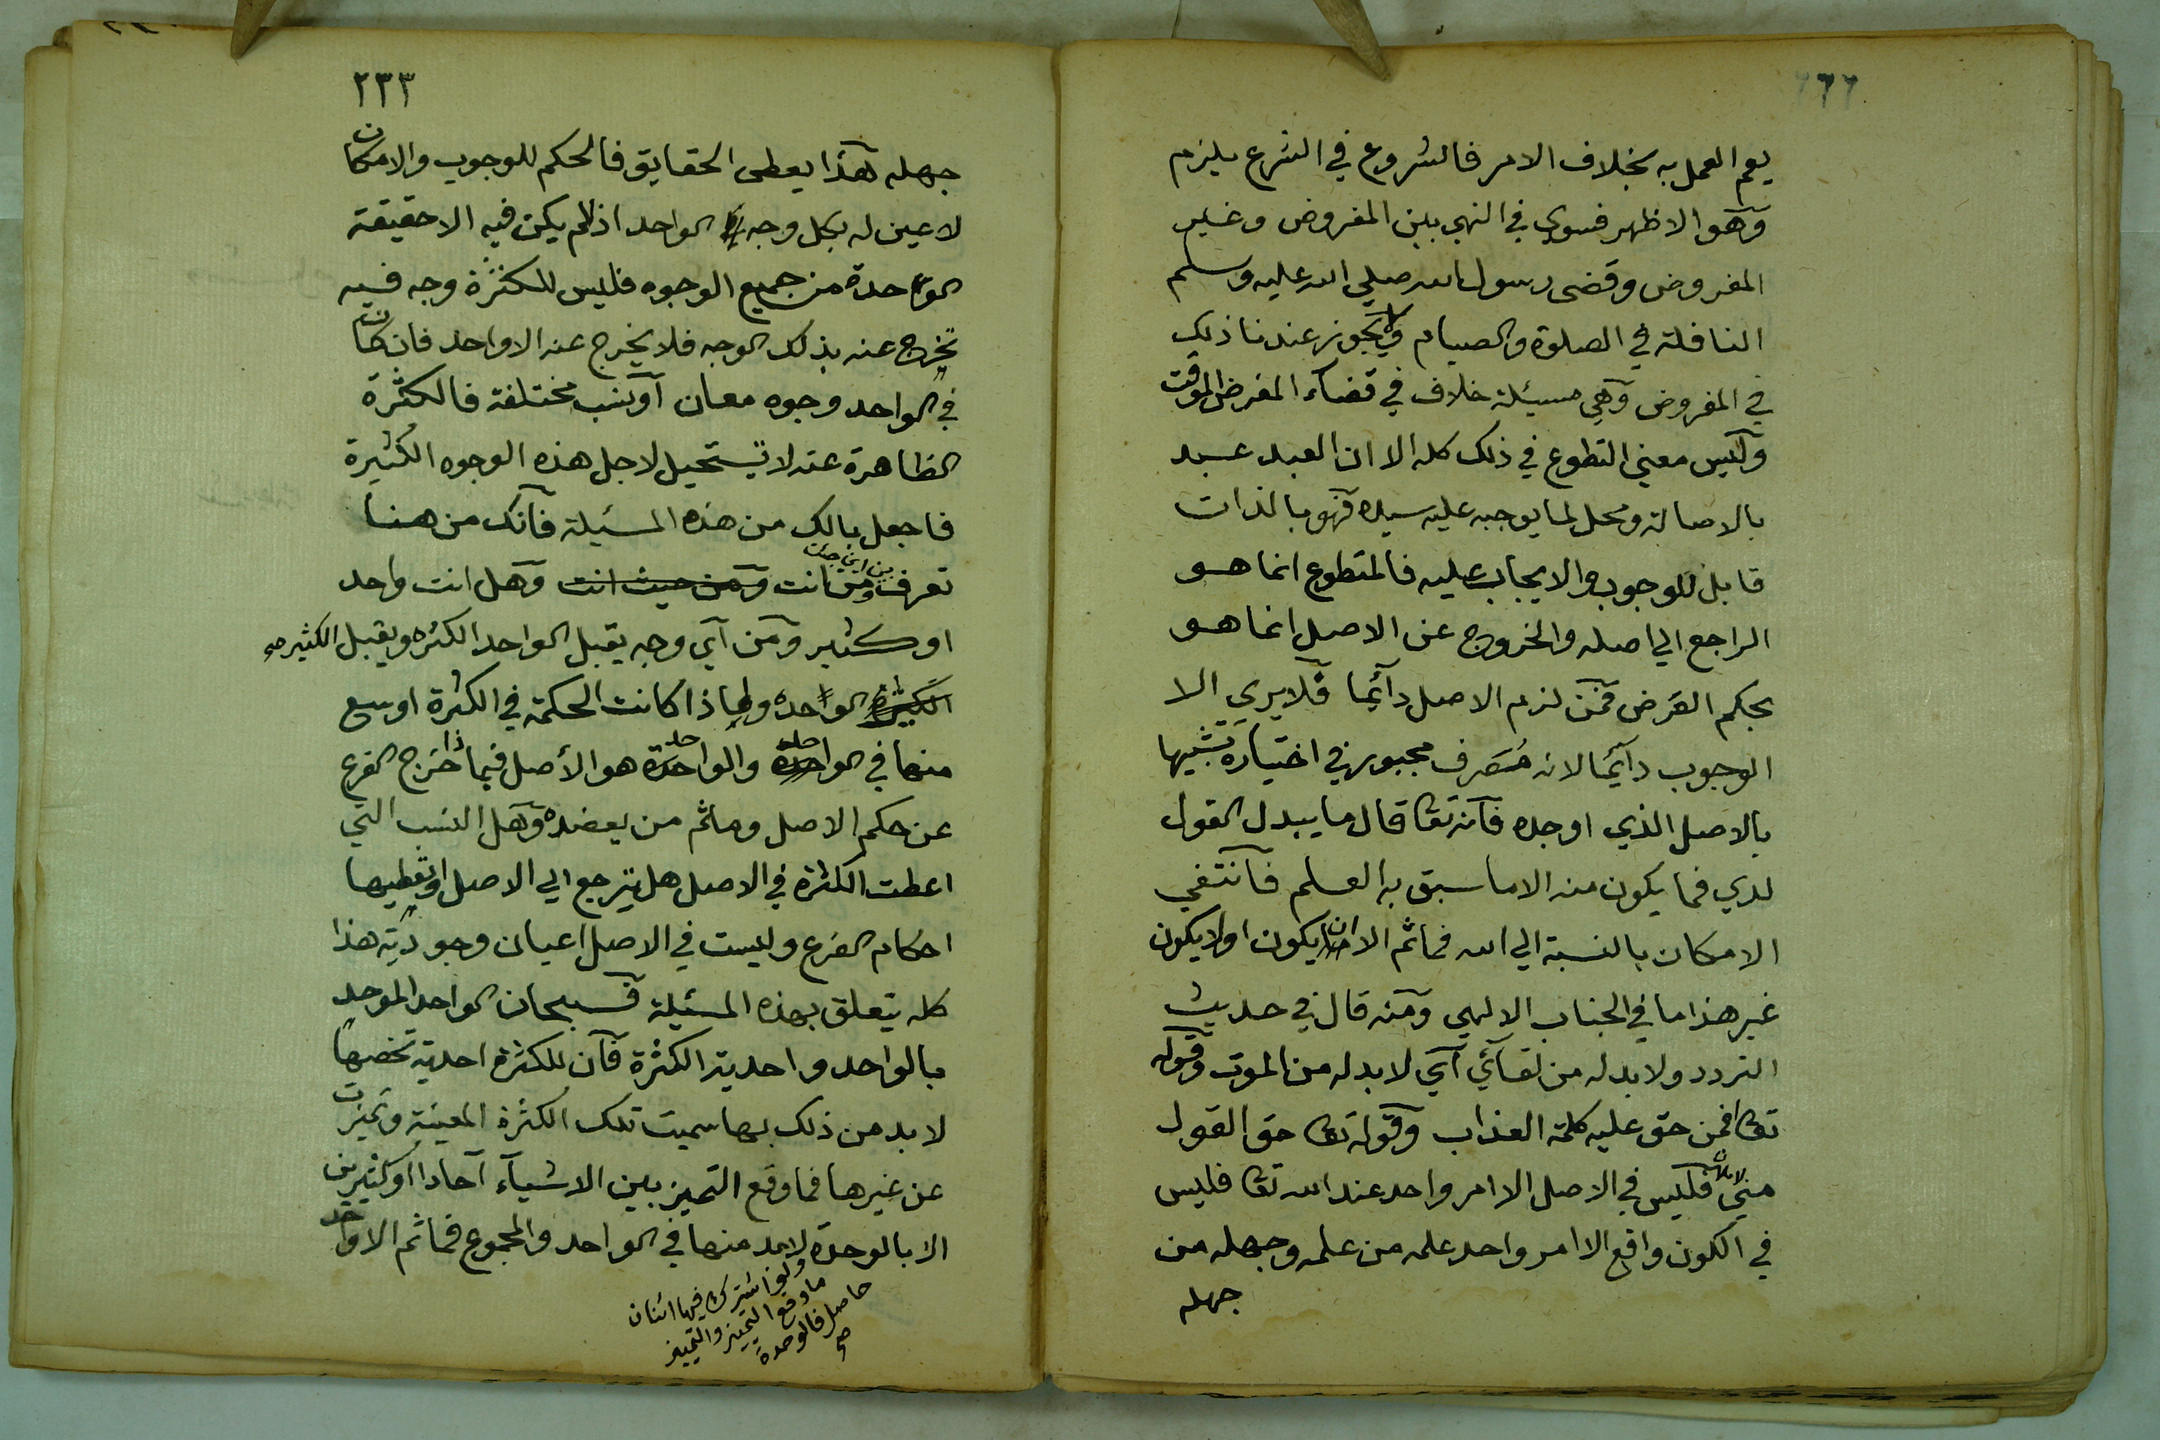 يعم العمل به بخلاف الامر فالشروع في الشرع يلزم
وهو الاظهر فسوي في النهي بين المفروض وغير
المفروض وقضى رسول الله صلى الله عليه وسلم
النافلة في الصلوة والصيام ولا يجوز عندنا ذلك
في المفروض وهي مسيئلة خلاف في قضاء المفرض الموقت
وليس معنى التطوع في ذلك كله الا ان العبد عبد
بالاصالة ومحل لما يوجبه عليه سيده فهو بالذات
قابل للوجوب والايجاب عليه فالمتطوع انما هو
الراجع الي اصله والخروج عن الاصل انما هو
بحكم العرض فمن لزم الاصل دآئما فلا يري الا
الوجوب دآئما لانه مصرف مجبور في اختياره تشبيها
بالاصل الذي اوجده فانه تعا قال ما يبدل القول
لدي فما يكون منه الا ما سبق به العلم فانتفي
الامكان بالنسبة الي الله فما ثم الا ان يكون او لا يكون
غير هذا ما في الجناب الالهي ومنه قال في حديث
التردد ولا بد له من لقآئي آي لا بد له من الموت وقوله
تعا افمن حق عليه كلمة العذاب وقوله تعا حق القول
مني لاملان فليس في الاصل الا امر واحد عند الله تعا فليس
في الكون واقع الا امر واحد علمه من علمه وجهله من
جهله
٢٣٣
جهله هذا يعطي الحقايق فالحكم للوجوب والامكان
لا عين له بكل وجه الواحد اذ لم يكن فيه الا حقيقة
الواحدة من جميع الوجوه فليس للكثرة وجه فيه
تخرج عنه بذلك الوجه فلا يخرج عنه الا واحد فان كان
في الواحد وجوه معان آو نسب مختلفة فالكثرة
الظاهرة عنه لا تستحيل لاجل هذه الوجوه الكثيرة
فاجعل بالك من هذه المسئيلة فآنك من هنا
تعرف من اين جئت ومن انت ومن حيث انت وهل انت واحد
او كثير ومن آي وجه يقبل الواحد الكثره ويقبل الكثير صح
الكثيرة الواحده ولماذا كانت الحكمة في الكثرة اوسع
منها في الواحد والواحد هو الأصل فبماذا خرج الفرع
عن حكم الاصل وما ثم من يعضده وهل النسب التي
اعطت الكثرة في الاصل هل ترجع الي الاصل او تعطيها
احكام الفرع وليست في الاصل اعيان وجودية هذا
كله يتعلق بهذه المسئيلة فسبحان الواحد الموحد
بالواحد واحدية الكثرة فآن للكثرة احدية تخصها
لا بد من ذلك بها سميت تلك الكثرة المعينة وتميزت
عن غيرها فما وقع التميز بين الاشيآء آحادا او كثيرين
الا بالوحدة لا بد منها في الواحد والمجموع فما ثم الا واحد
ولو اشترك فيها اثنان
ما وقع التميز والتميز
حاصل فالوحدة
صح